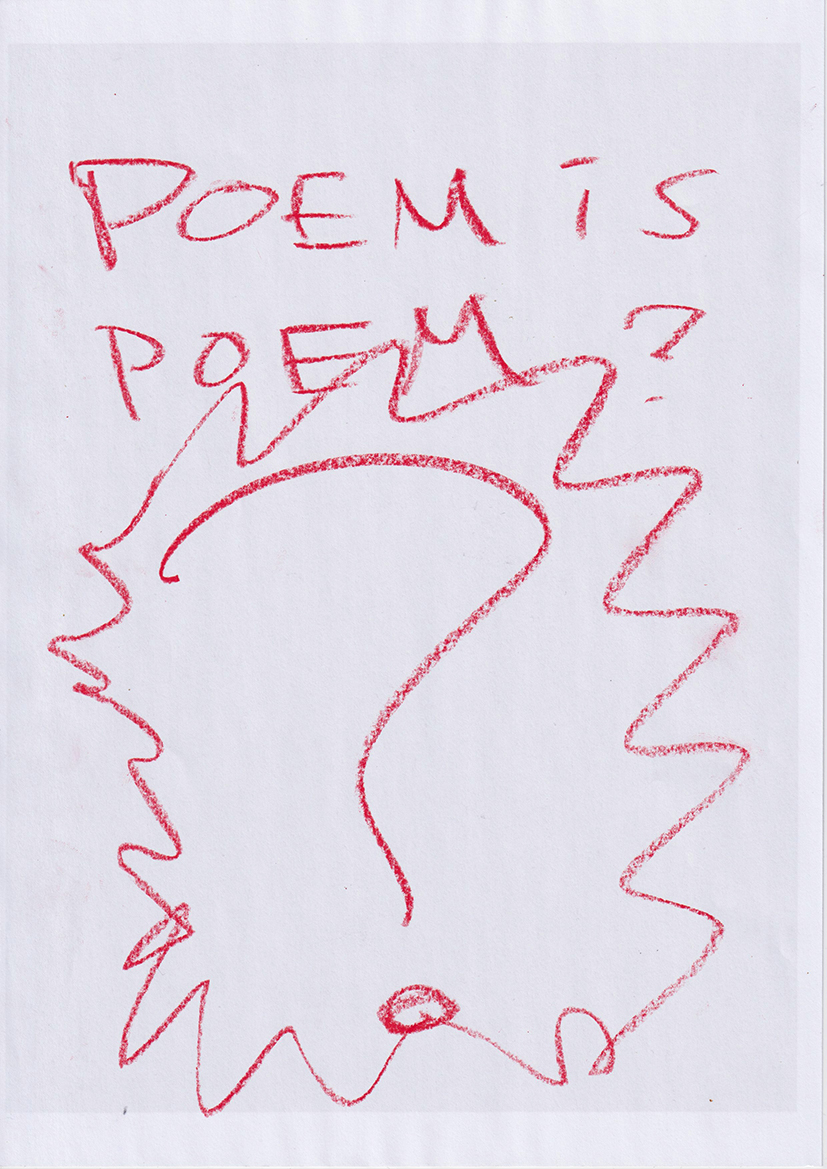 POEM is
POEM?
?